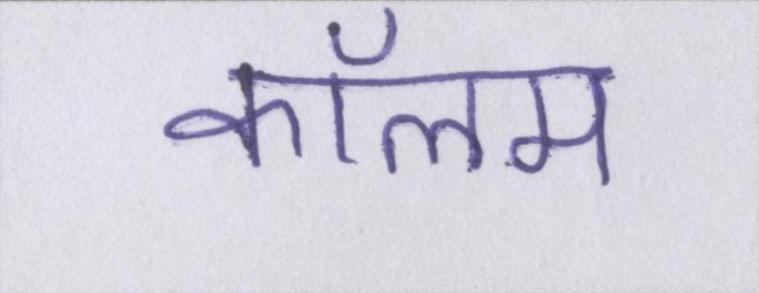 कॉलम